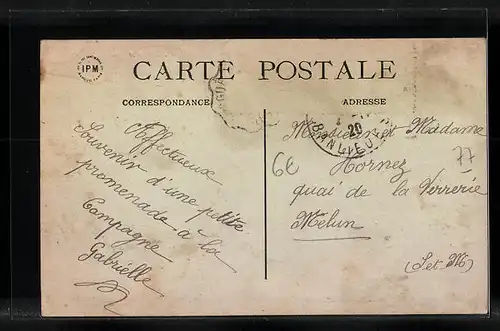 IPM
CARTE POSTALE
CORRESPONDANCE
ADRESSE
20
BANLIEU
Affectueux
Souvenir d'une petite
promenade à la
Campagne
Gabrielle
Monsieur et Madame
Hornez
quai de la Verrerie
Melun
(S et M)
6E
77